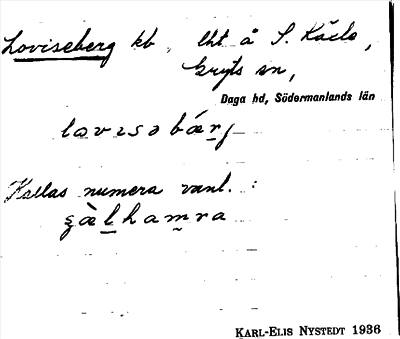 Loviseberg kb, lht å S. Kärlo,
Gryts sn,
Daga hd, Södermanlands län
lavisəbǽrj
Kallas numera vanl. :
gæ̀lhamra
KARL-ELIS NYSTEDT 1936